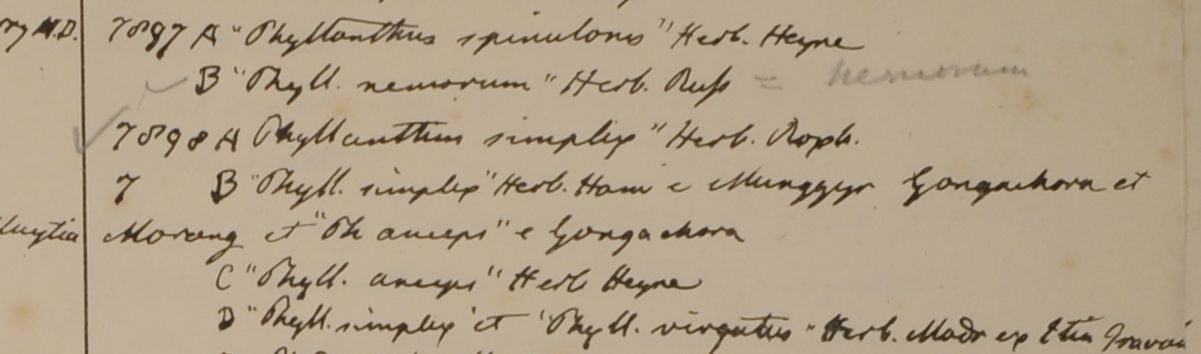 7897 A "Phyllanthus spinulosus" Herb. Heyne
B "Phyll. nemorum" Herb. Russ = nemorum
7898 A Phyllanthus simplex" Herb. Roxb.
7 B "Phyll. simplex" Herb. Ham e Mungger Gongachora et
Morang et "Ph anceps" e Gongachora
C "Phyll. anceps" Herb Heyne
D "Phyll. simplex" et "Phyll. virgatus" Herb. Madr ex